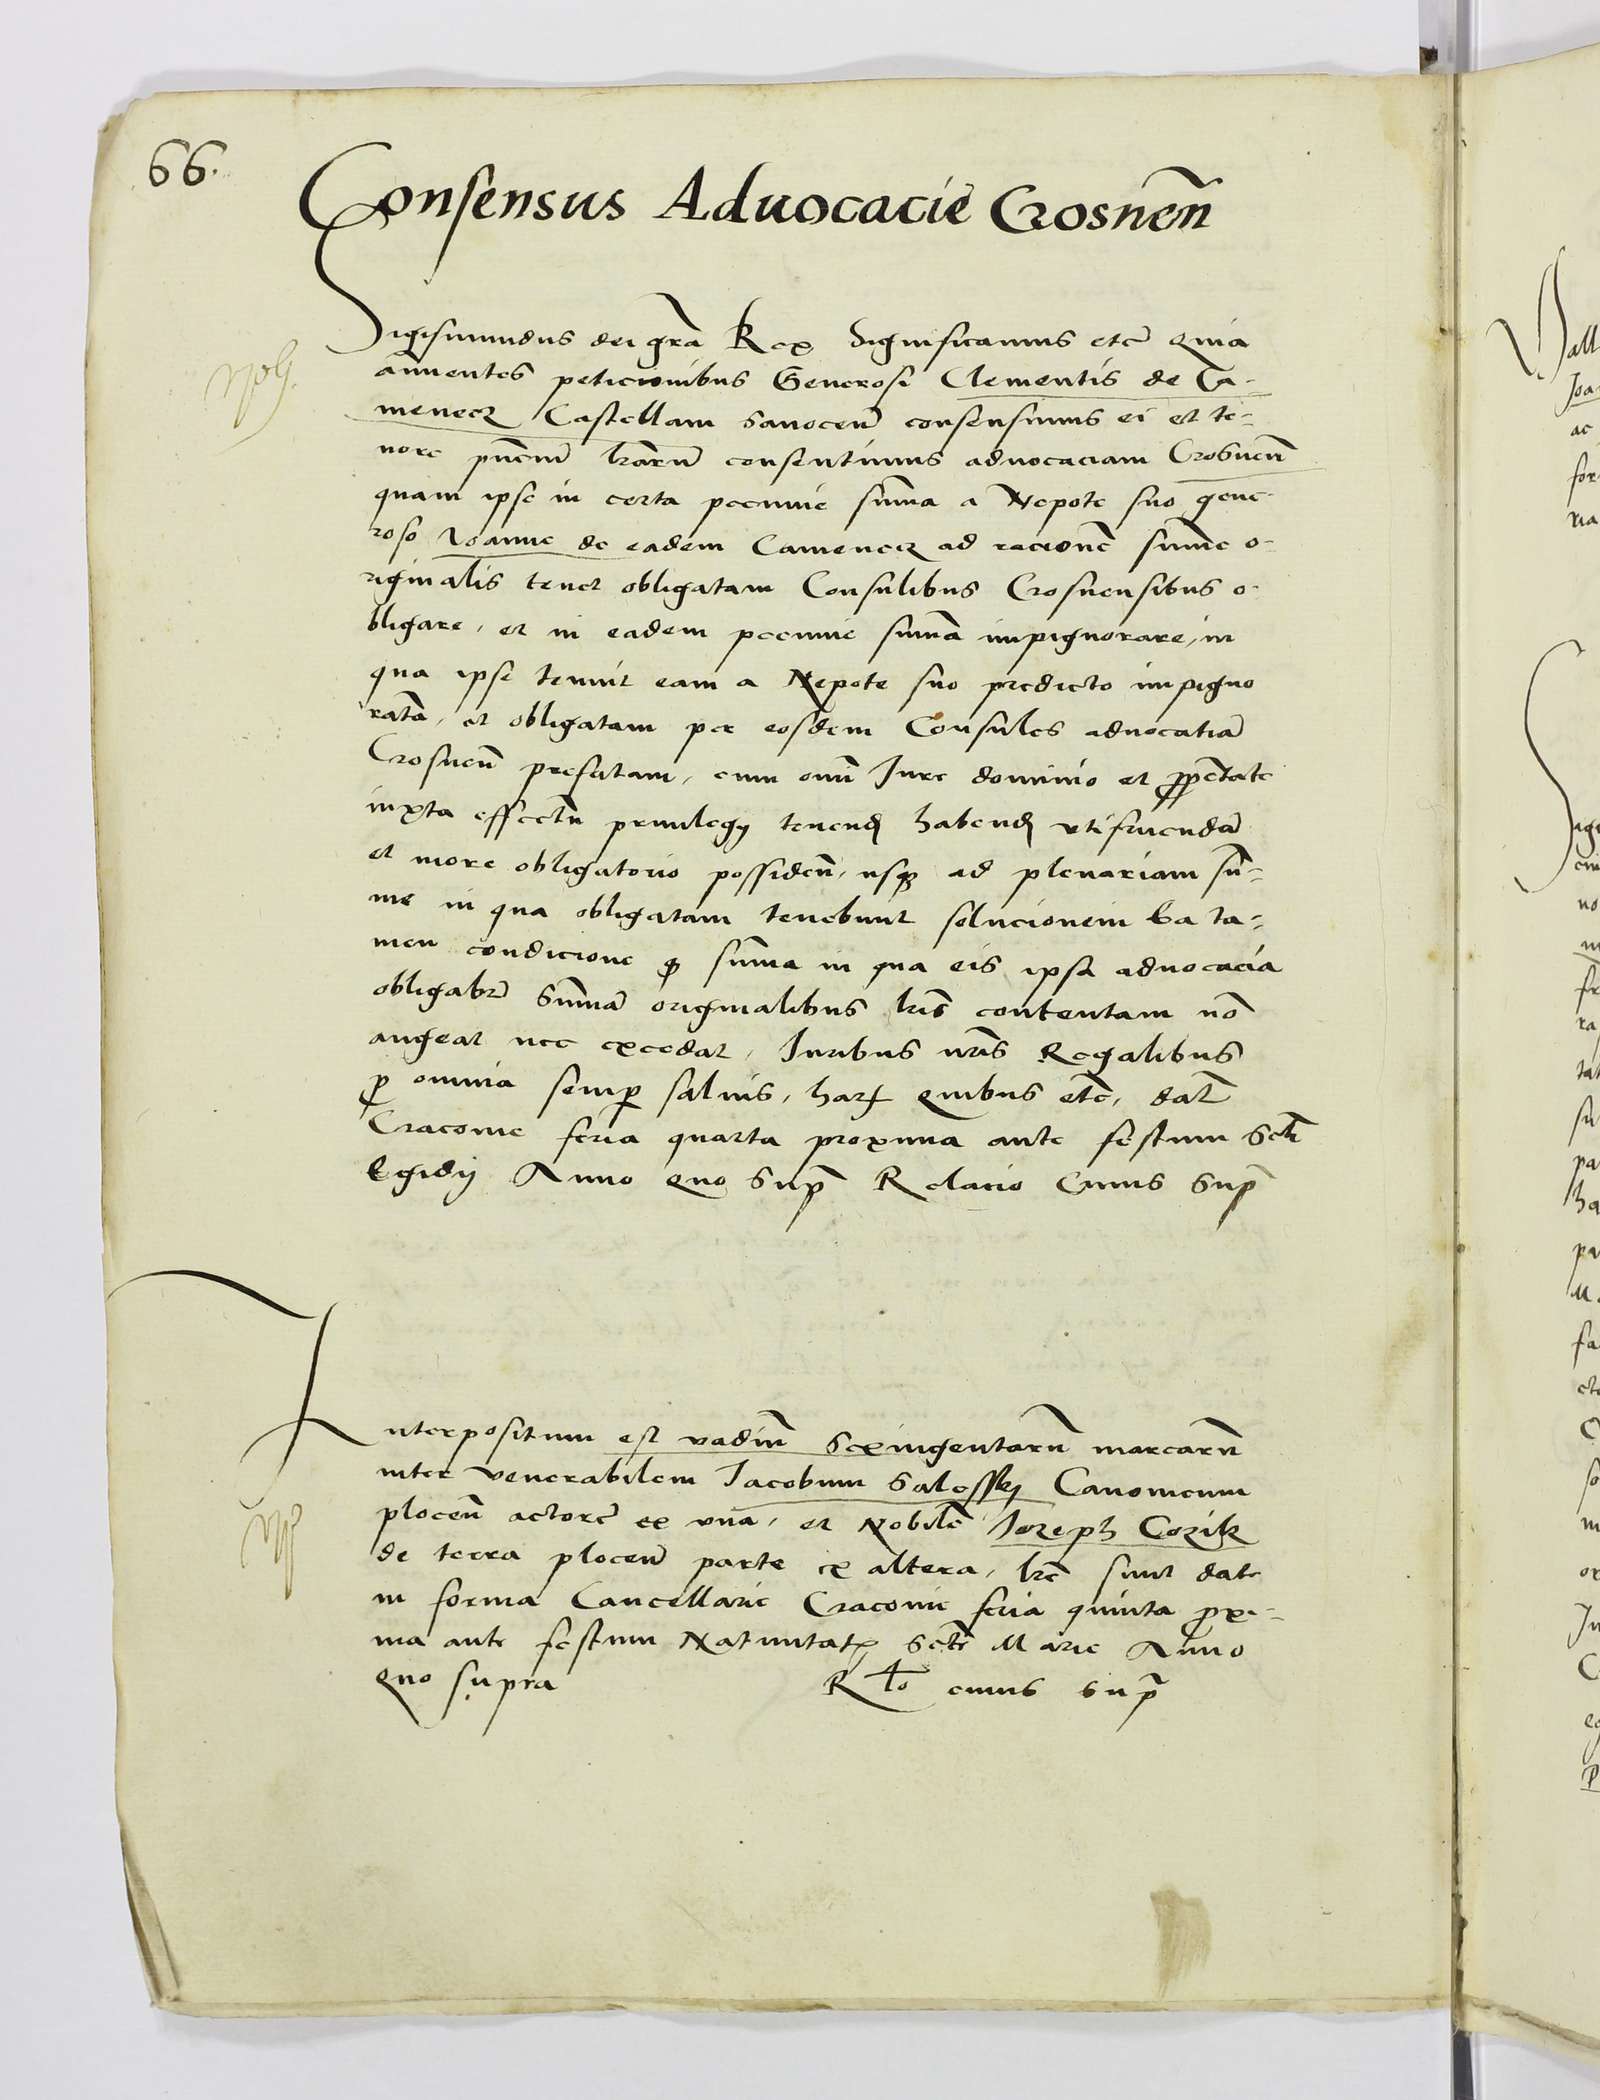 66.
Consensus Aduocacie Crosneñ
Sigismundus dei gra͂ Rex Significamus etc͂ Quia
annuentes peticionibus Generosi Clementis de Ca-
menecz Castellani Sanoceñ consensimus ei et te-
nore pn̄cium lr̄aru͂ consentimus aduocaciam Crosneñ
quam ipse in certa pecunie sum̄a a Nepote suo gene-
roso Ioanne de eadem Camenecz ad racione͂ sum̄e o-
riginalis tenet obligatam Consulibus Crosnensibus o-
bligare, et in eadem pecunie sum̄a impignorare, in
qua ipse tenuit eam a Nepote suo predicto impigno
rata͂, et obligatam per eosdem Consules aduocatia͂
Crosneñ prefatam, cum om̄i Iure dominio et ꝓprietate
iuxta effectu͂ priuilegij tenend habend vtifruenda͂
et more obligatorio possideñ, usqꝫ ad plenariam sum̄-
me in qua obligatam tenebunt solucionem Ea ta-
men condicione ꝙ sum̄a in qua eis ipsa aduocacia
obligabit͂ Sum̄a͂ originalibus lr̄is contentam no͂
augeat nec excedat, Iuribus nr̄is Regalibus
ꝑ omnia semꝑ saluis, harꝝ quibus etc͂, dat͂
Cracouie feria quarta proxima ante festum Scti͂
Egidij Anno quo Supͣ Relacio Cuius Supͣ
Interpositum est vadiu͂ Sexingentaru͂ marcaru͂
inter venerabilem Iacobum Salesskj Canonicum
ploceñ actore͂ ex vna, et Nobile͂ Iozeph Cozik
de terra ploceñ parte ex altera, lr̄e sunt date
in forma Cancellarie Cracouie feria quinta ꝓxi-
ma ante festum Natiuitatꝭ Scte͂ Marie Anno
quo supra Rlo cuius supͣ